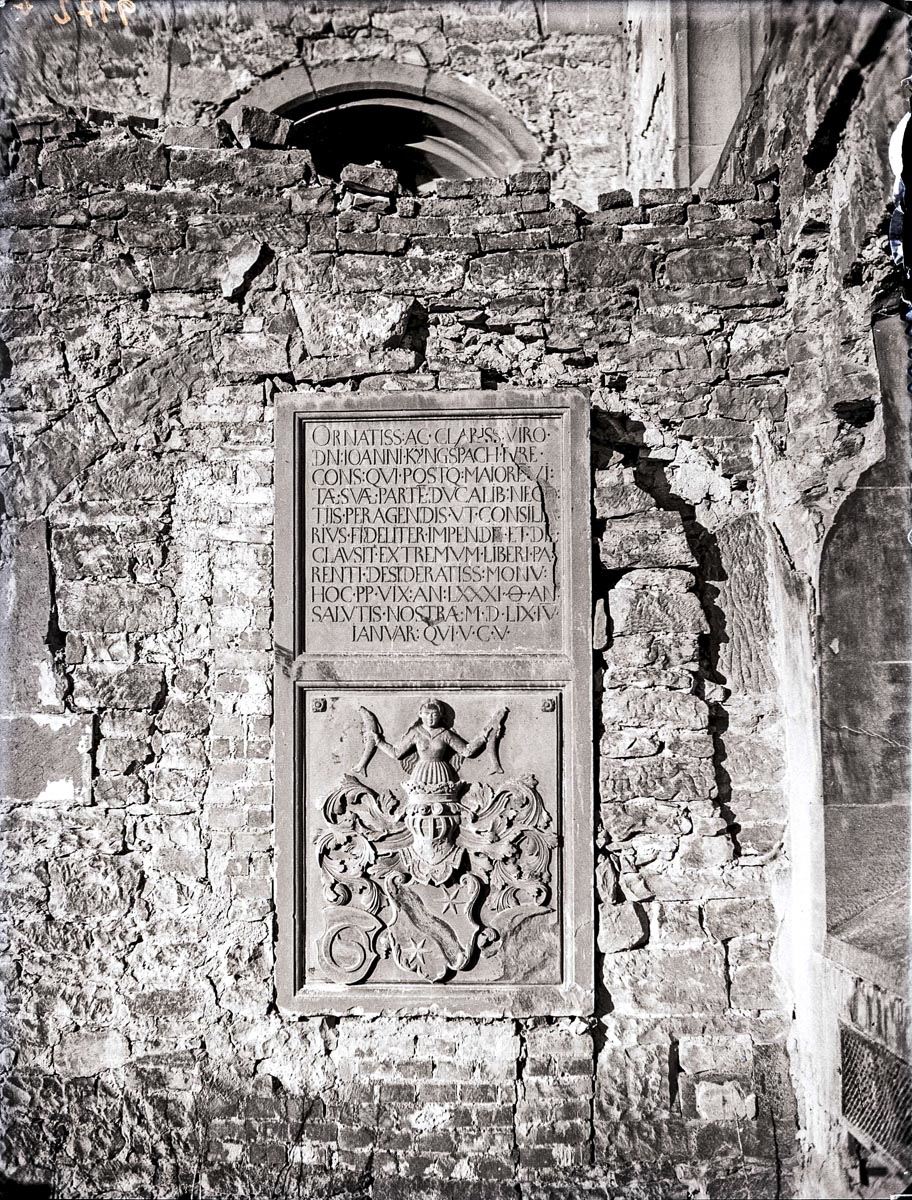 ORNATISS·AC·CLAR·SS·VIRO·
DN·IOANNI·KYNGSPACH·IVRE·
CONS·QVI·POSTQ·MAIORE·VI·
TÆ·SVÆ·PARTE·DVCALIB·NEG
TIIS·PERAGENDIS·VT·CONSILI
RIVS·FIDELITER·IMPENDE·ET·DI
CLAVSIT·EXTREMVM·LIBERI·PA
RENTI·DESIDERATISS·MONV:
HOC·PP·VIX·AN·LXXXI·Θ·AN
SALVTIS·NOSTRÆ·M·D·LIX·IV
IANVAR:QVI·V·C·V·